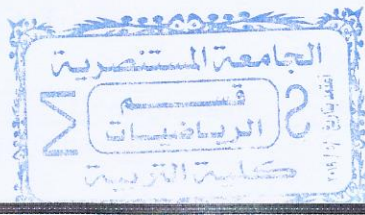 الجامعة المستنصرية
قسم
الرياضيات
كلية التربية